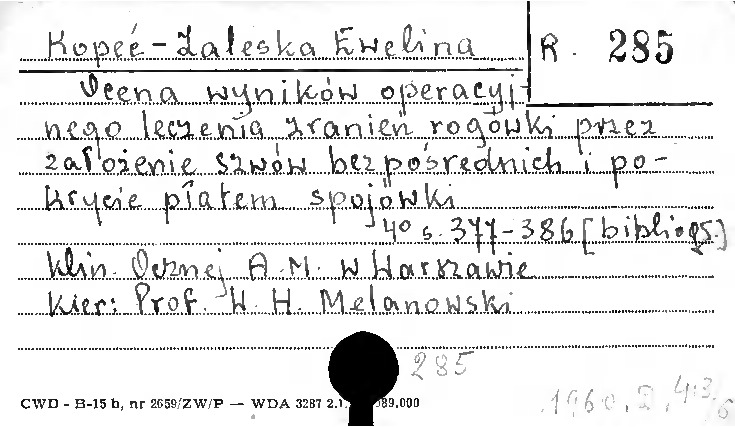 Kopeć-Zaleska Ewelina
R. 285
Ocena wyników operacyj-
nego leczenia zranień rogówki przez
założenie szwów bezpośrednich i po-
krycie płatem spojówki
4° s. 377-386 [bibliogr.]
Klin. Ocznej A.M. w Warszawie
Kier: Prof. W. H. Melanowski
285
CWD - B-15 b, nr 2659/ZW/P — WDA 3287 2.1. 089.000
1960.